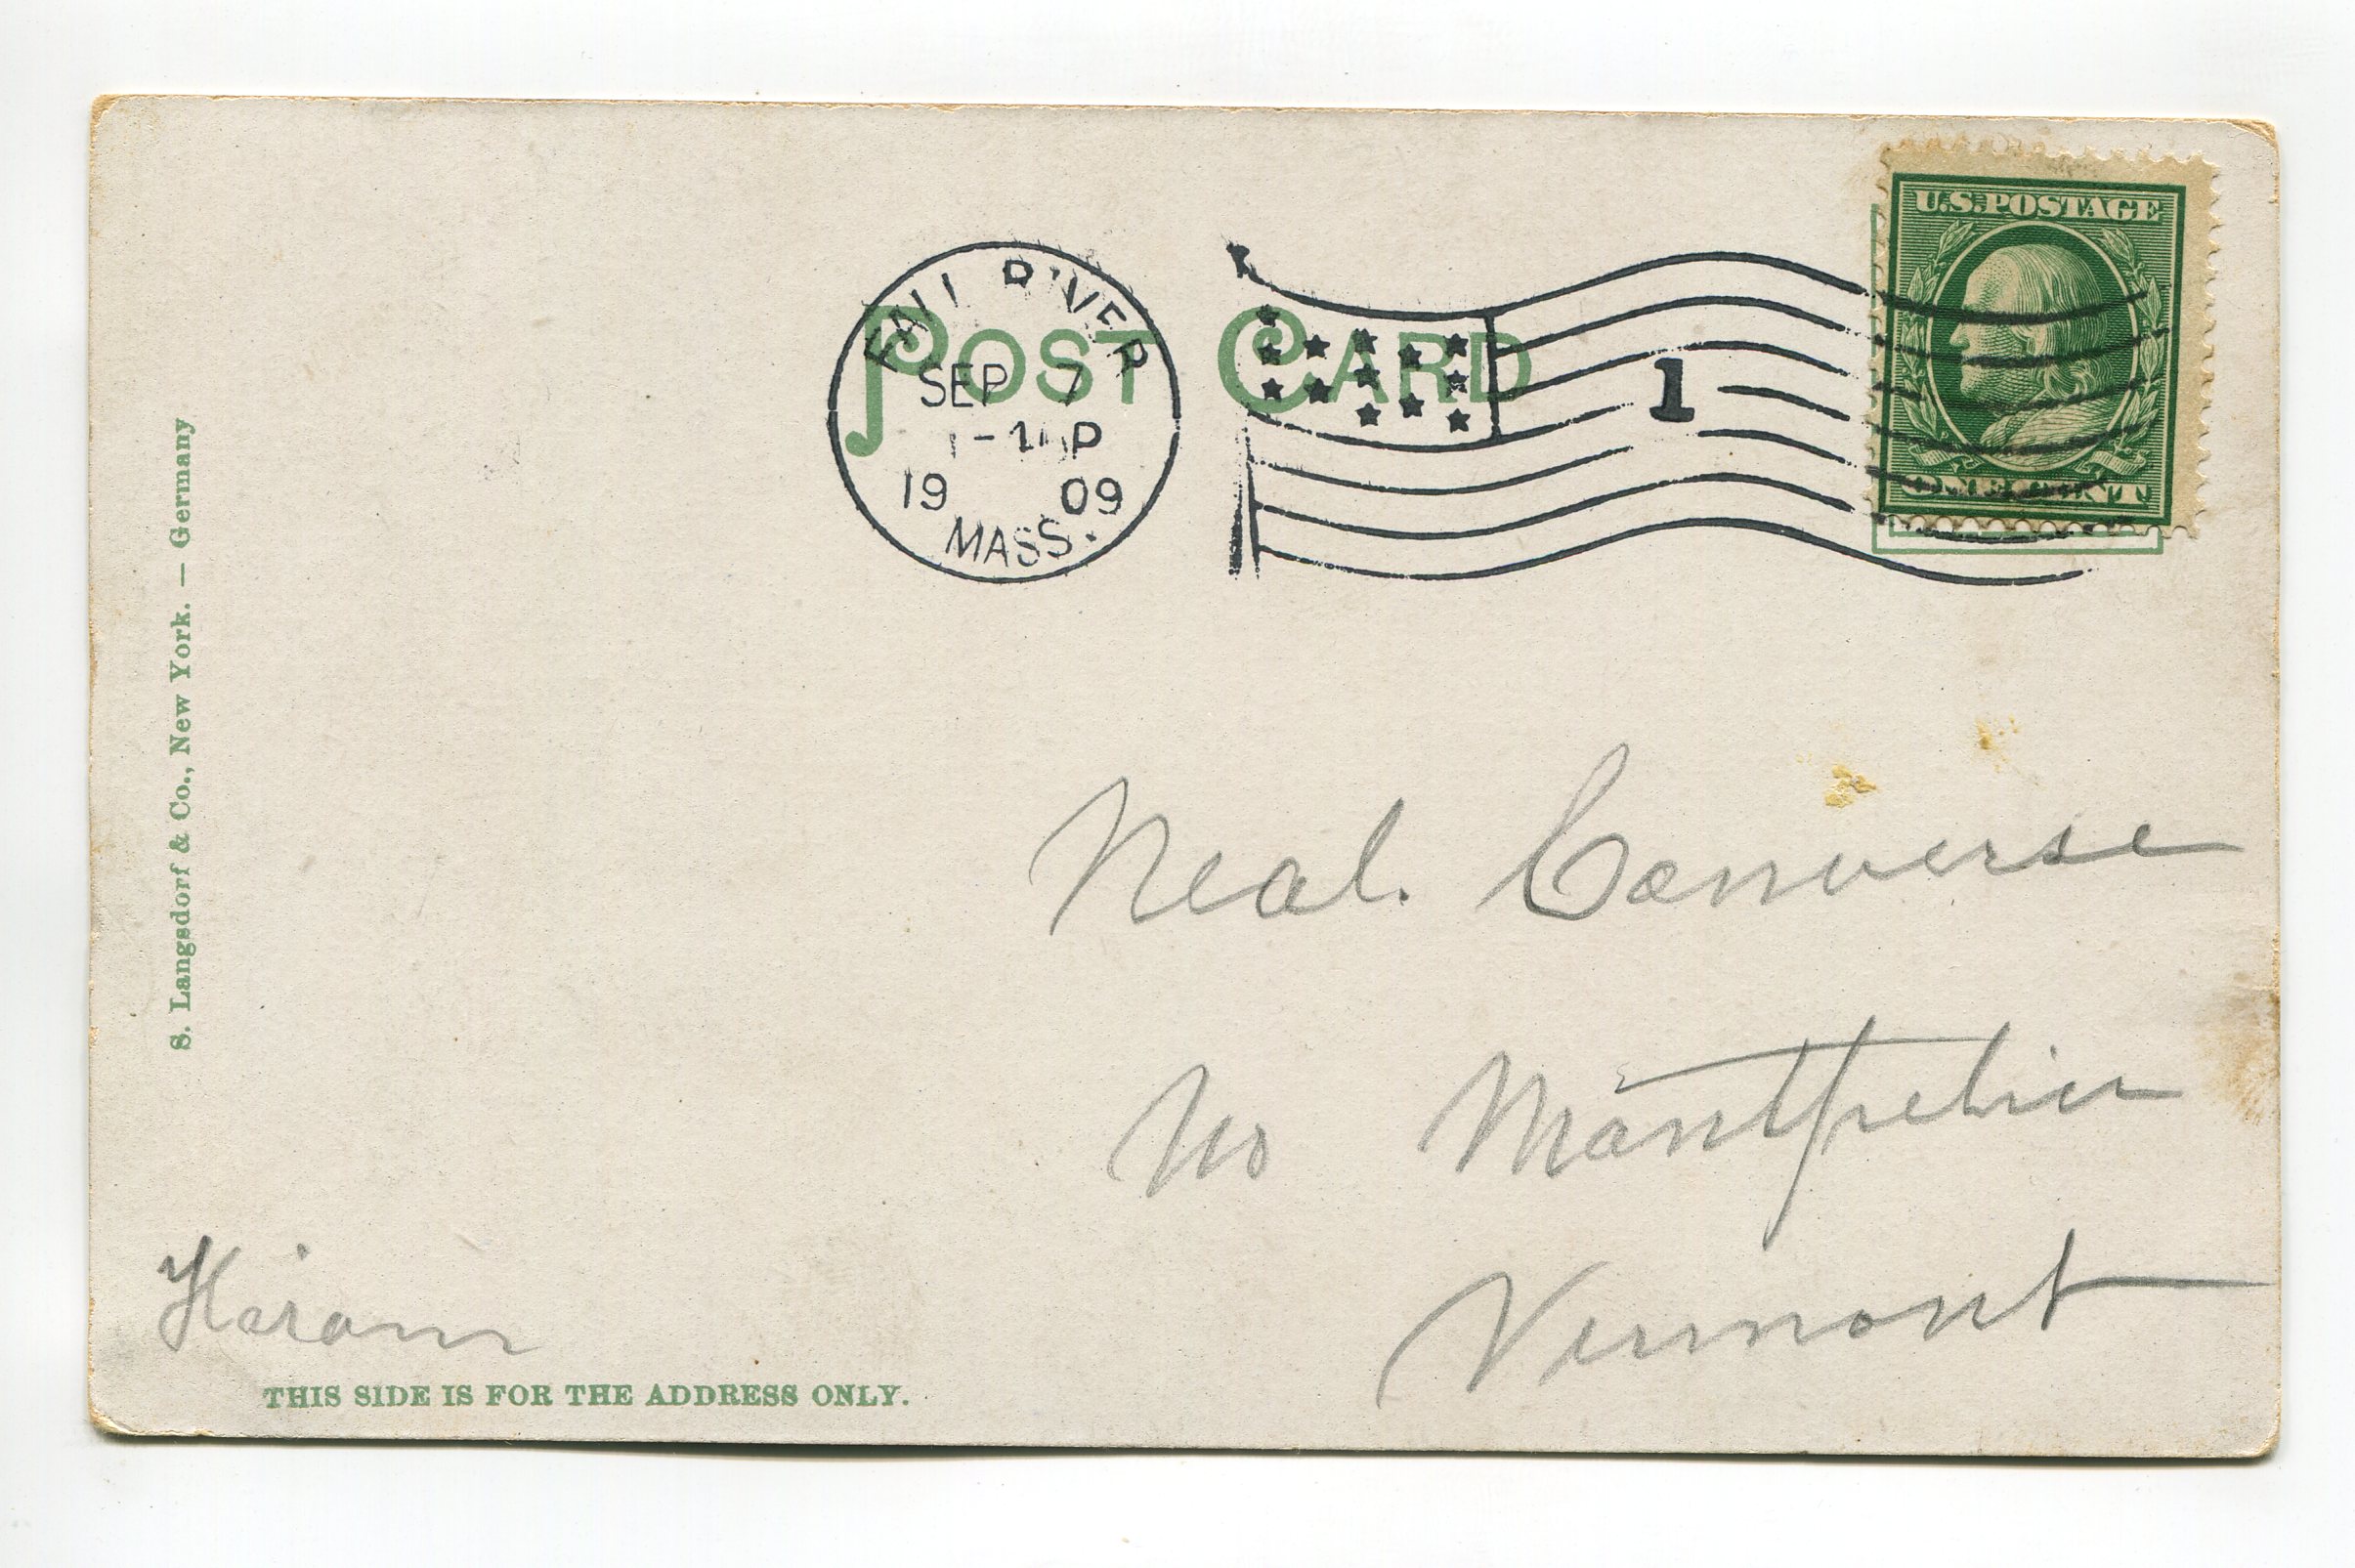 POST CARD
FALL RIVER
SEP 7
P
19 09
MASS.
1
U.S. POSTAGE
ONE CENT
S. Langsdorf & Co., New York. — Germany
Neal. Converse
No Montpelier
Vermont
Hiram
THIS SIDE IS FOR THE ADDRESS ONLY.